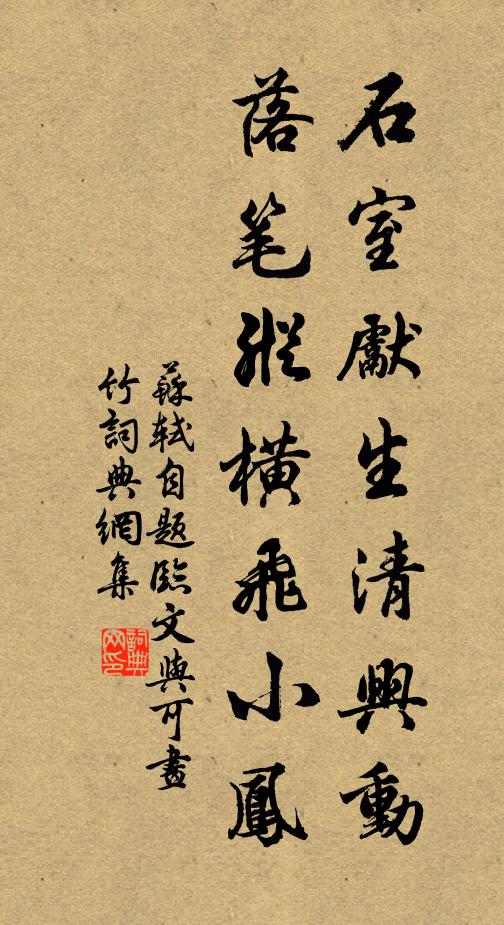 石室獻生清興動
落笔縱橫飛小鳳
蘇軾自题臨文與可畫
竹詞典網集
詞典
网印